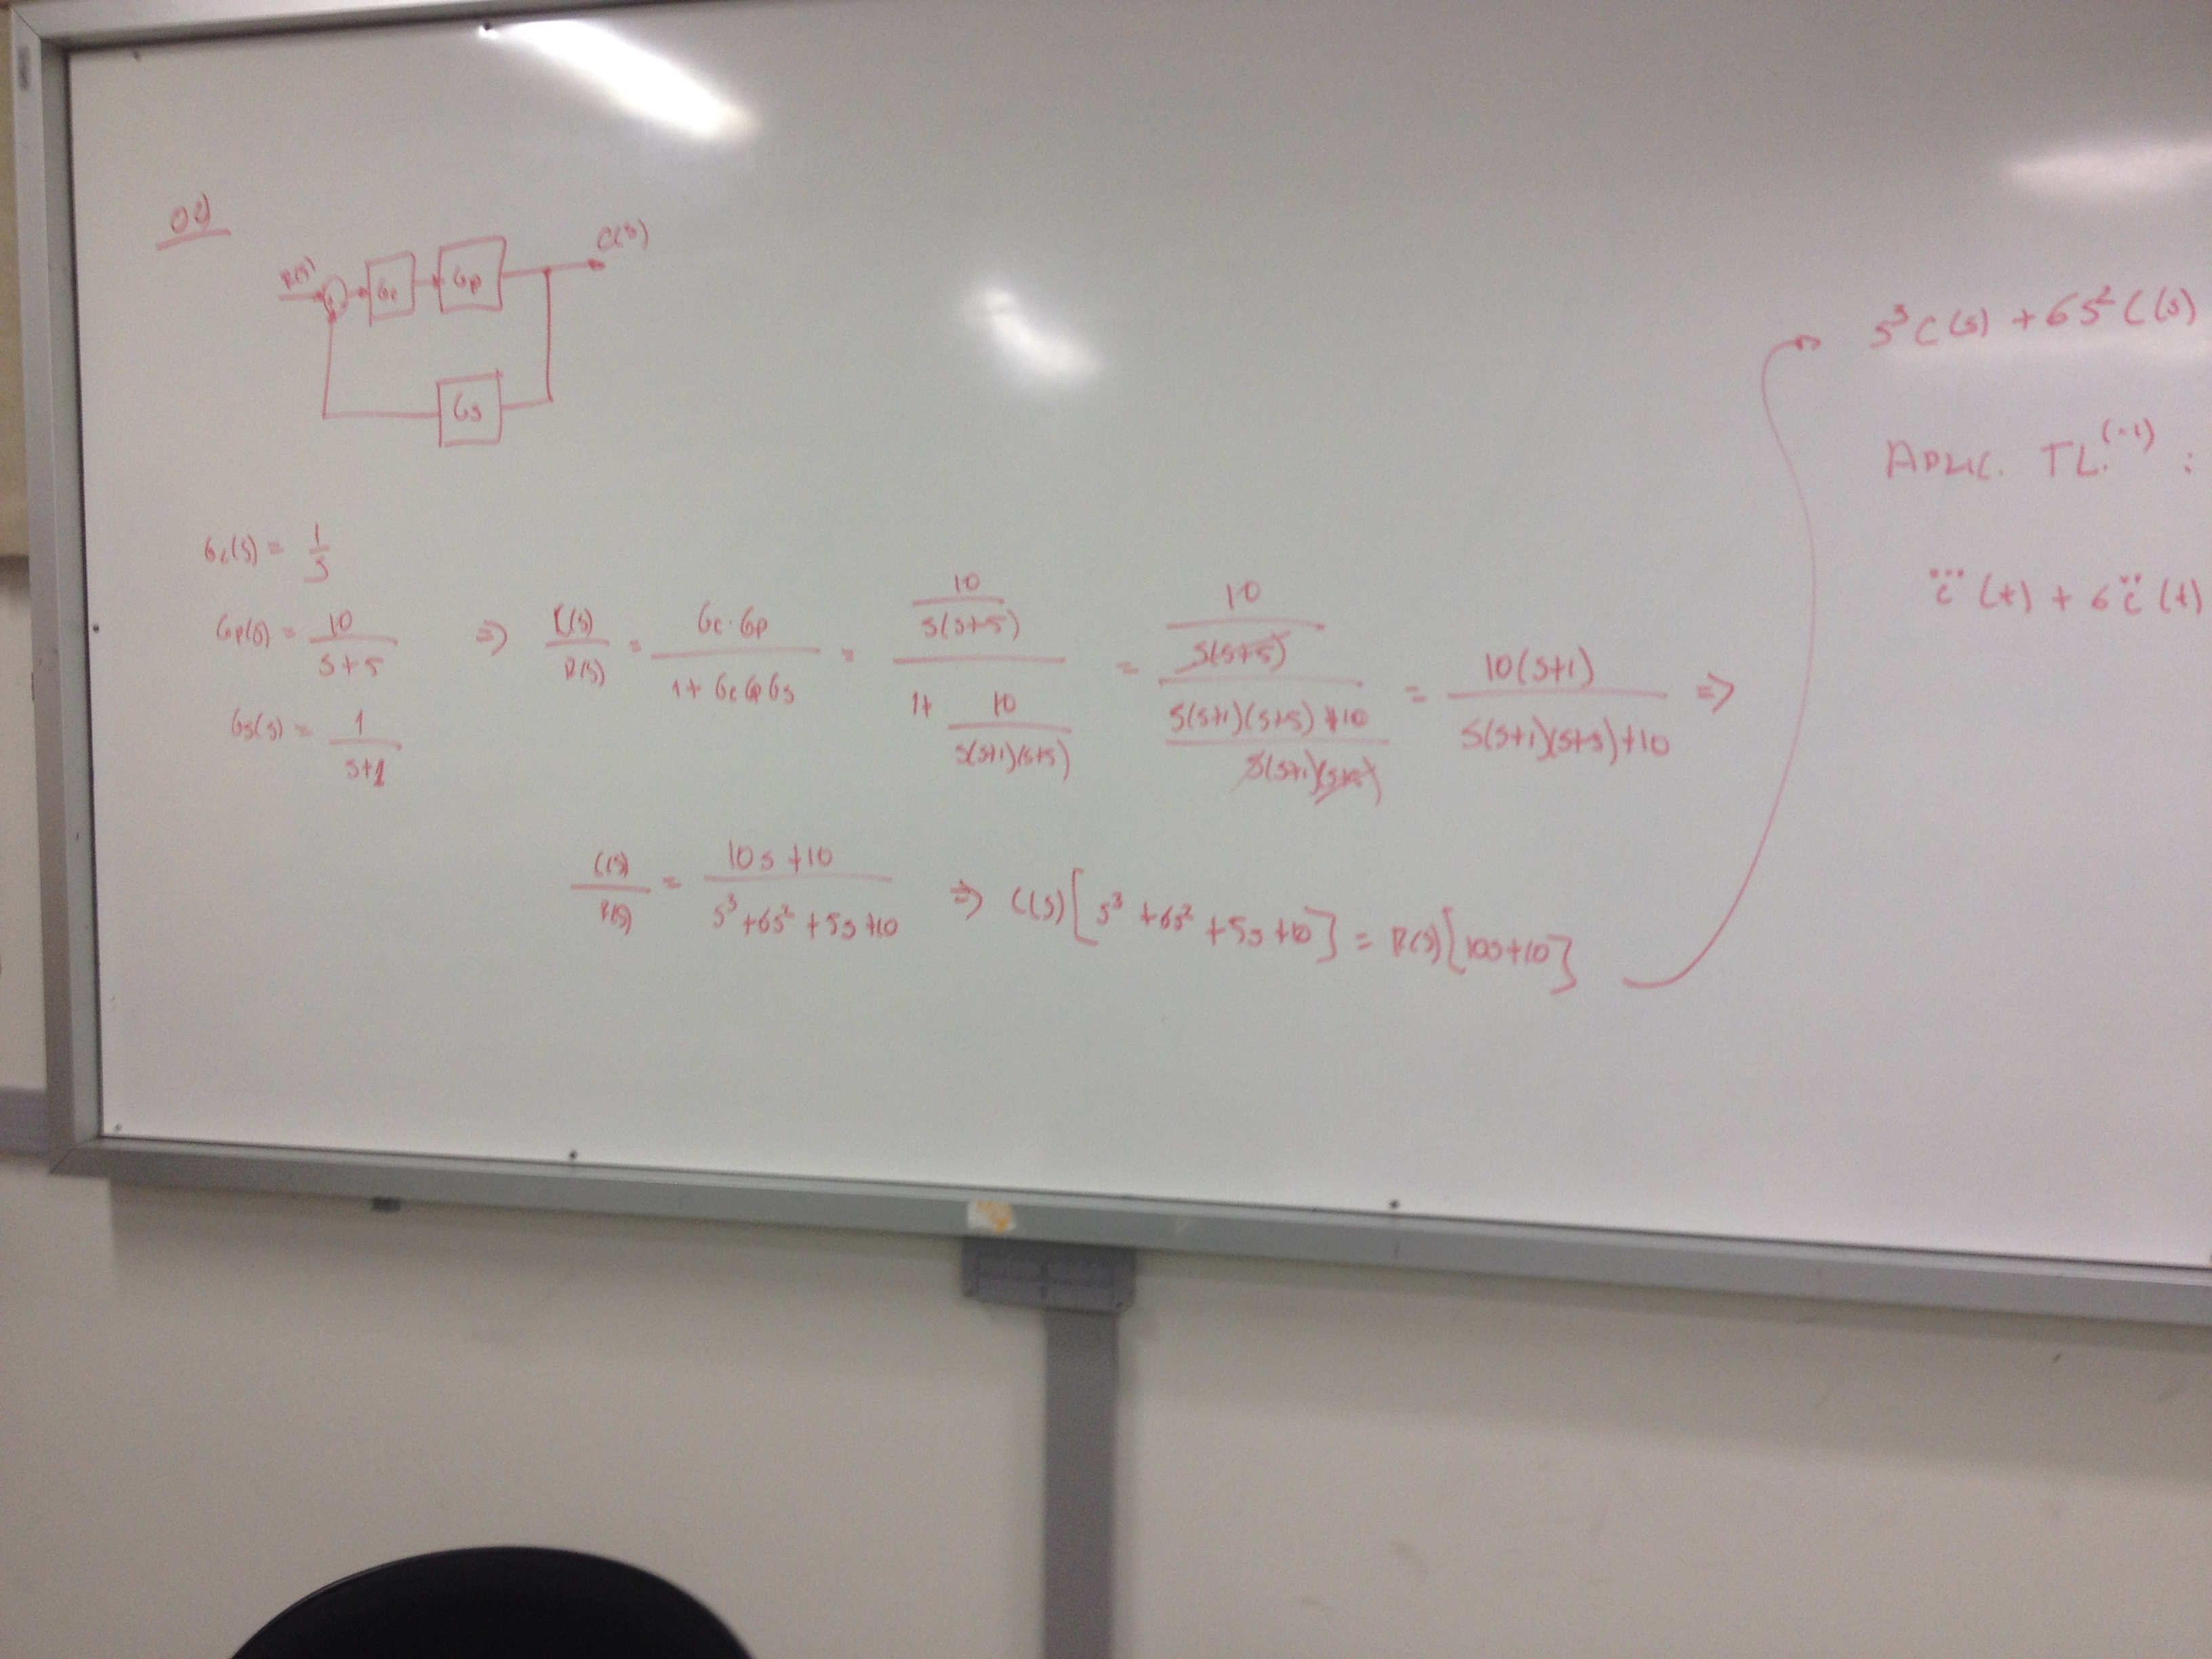 02)
R(s)
Gc
Gp
C(s)
Gs
Gc(s) = 1/s
Gp(s) = 10/(s+5)
Gs(s) = 1/(s+1)
⇒ C(s)/R(s) = Gc·Gp/(1+GcGpGs) = (10/(s(s+5)))/(1+10/(s(s+1)(s+5))) = (10/(s(s+5)))/((s(s+1)(s+5)+10)/(s(s+1)(s+5))) = 10(s+1)/(s(s+1)(s+5)+10) ⇒
C(s)/R(s) = (10s+10)/(s³+6s²+5s+10) ⇒ C(s)[s³+6s²+5s+10] = R(s)[10s+10]
s³C(s)+6s²C(s)
APLIC. TL.⁽⁻¹⁾:
c⃛(t)+6c̈(t)